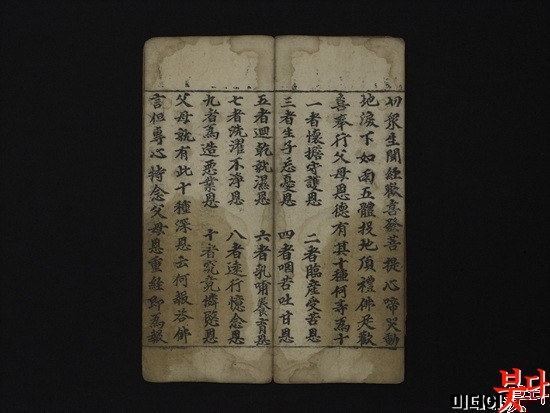 切衆生聞經歡喜發菩提心啼哭動
地淚下如雨五體投地頂禮佛足歡
喜奉行父母恩德有其十種何等爲十
一者懷擔守護恩 二者臨產受苦恩
三者生子忘憂恩 四者咽苦吐甘恩
五者迴乾就濕恩 六者乳哺養育恩
七者洗濯不淨恩 八者遠行憶念恩
九者爲造惡業恩 十者究竟憐愍恩
父母就有此十種深恩云何報答佛
言但專心持念父母恩重經即爲報
미디어붓다